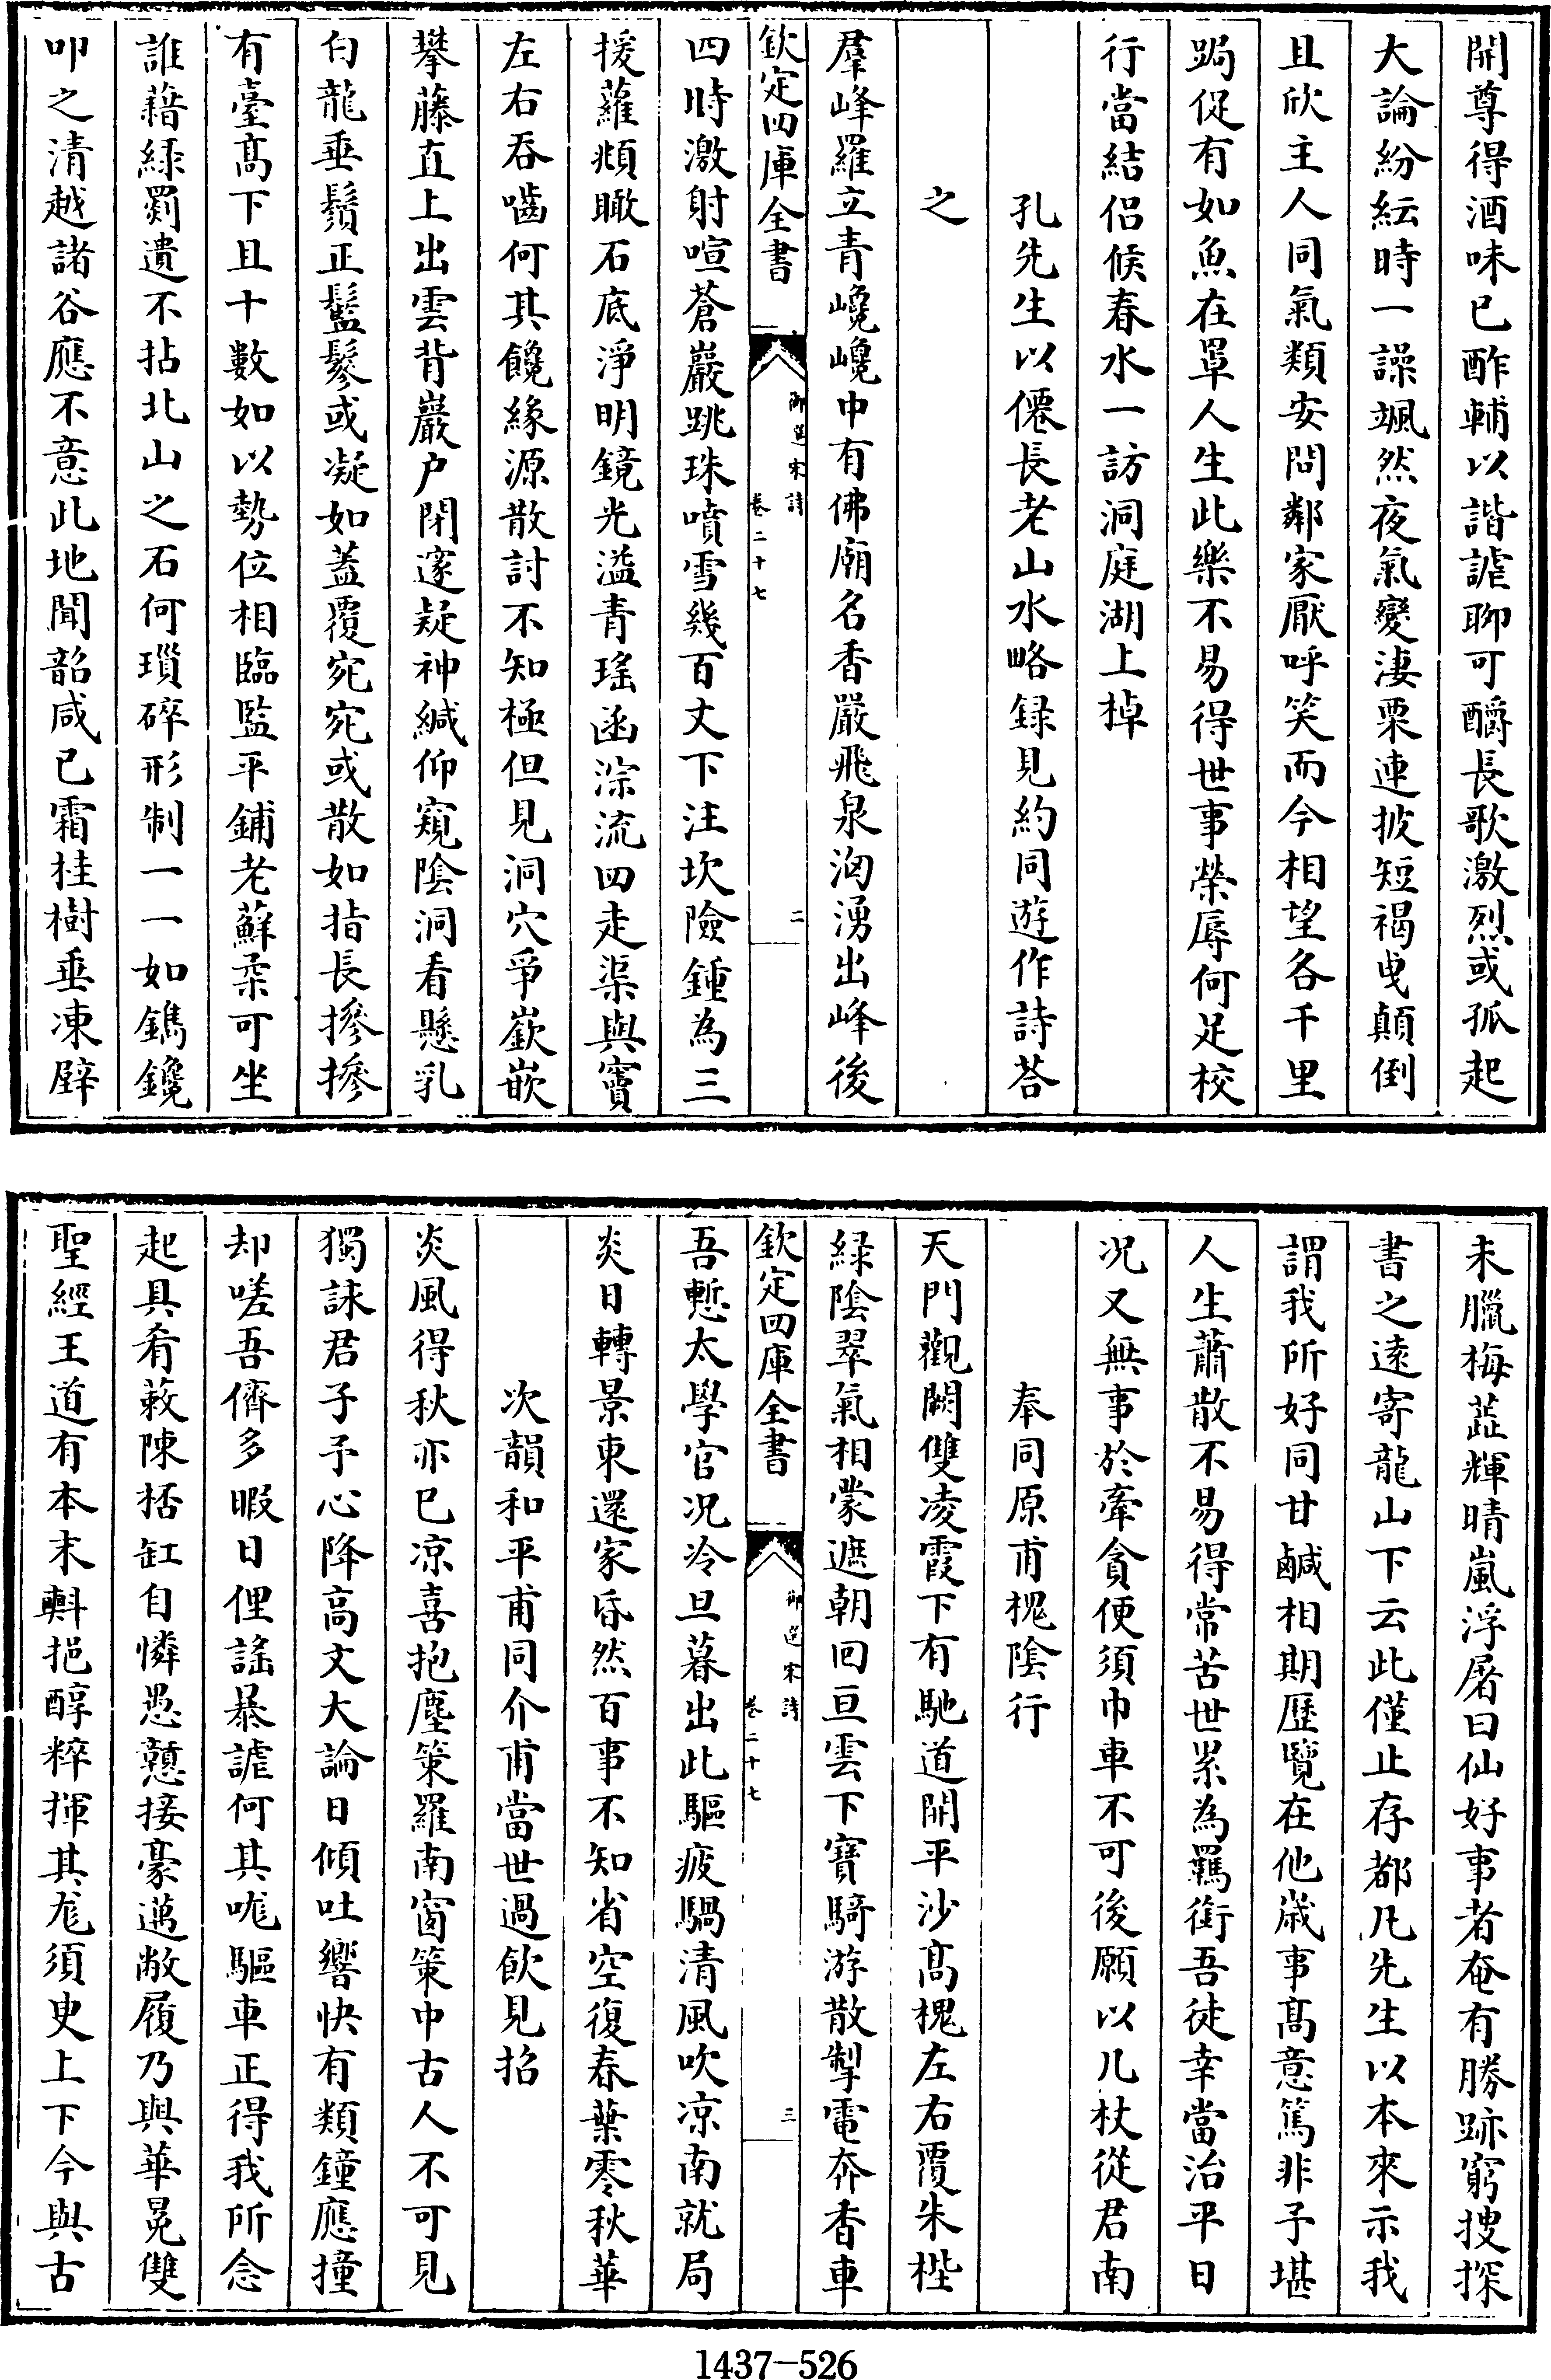 開尊得酒味已酢輔以諧謔聊可釂長歌激烈或孤起
大論紛紜時一譟颯然夜氣變淒栗連披短褐曵顛倒
且欣主人同氣類安問鄰家厭呼笑而今相望各千里
跼促有如魚在罩人生此樂不易得世事榮辱何足校
行當結侣候春水一訪洞庭湖上棹
孔先生以僊長老山水略録見約同遊作詩荅
之
羣峰羅立青巉巉中有佛廟名香嚴飛泉洶湧出峰後
欽定四庫全書
御選宋詩
卷二十七
二
四時激射喧蒼巖跳珠噴雪幾百丈下注坎險鍾為三
援蘿頫瞰石底淨明鏡光溢青瑤函淙流四走渠與竇
左右吞嚙何其饞緣源散討不知極但見洞穴爭嶔嵌
攀藤直上出雲背巖户閉邃疑神緘仰窺陰洞看懸乳
白龍垂鬚正鬖鬖或凝如蓋覆宛宛或散如指長摻摻
有臺髙下且十數如以勢位相臨監平鋪老蘚柔可坐
誰藉緑罽遺不拈北山之石何瑣碎形制一一如鐫鑱
叩之清越諸谷應不意此地聞韶咸已霜桂樹垂凍壁
未臘梅蕋輝晴嵐浮屠曰仙好事者奄有勝跡窮搜探
書之遠寄龍山下云此僅止存都凡先生以本來示我
謂我所好同甘鹹相期歷覽在他歲事髙意篤非予堪
人生蕭散不易得常苦世累為羈銜吾徒幸當治平日
况又無事於牽貪便須巾車不可後願以几杖從君南
奉同原甫槐陰行
天門觀闕雙凌霞下有馳道開平沙髙槐左右覆朱梐
緑陰翠氣相蒙遮朝回亘雲下寶騎游散掣電奔香車
欽定四庫全書
御選宋詩
卷二十七
三
吾慙太學官况冷旦暮出此驅疲騧清風吹凉南就局
炎日轉景東還家昏然百事不知省空復春葉零秋華
次韻和平甫同介甫當世過飲見招
炎風得秋亦已凉喜抱塵策羅南窗策中古人不可見
獨誄君子予心降高文大論日傾吐響快有類鐘應撞
却嗟吾儕多暇日俚謡暴謔何其哤驅車正得我所念
起具肴蔌陳捂缸自憐愚戅接豪邁敝履乃與華冕雙
聖經王道有本末㪺挹醇粹揮其尨須史上下今與古